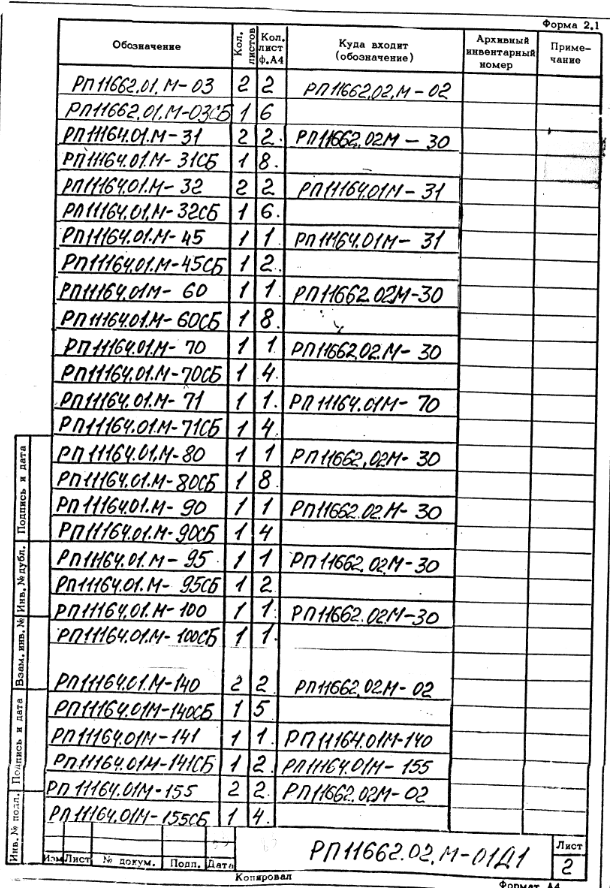 Форма 2.1
Обозначение Кол. листов Кол. лист ф.А4 Куда входит (обозначение) Архивный инвентарный номер Примечание
РП11662.01.М-03 2 2 РП11662.02.М-02
РП11662.01.М-03СБ 1 6
РП11164.01.М-31 2 2. РП11662.02М-30
РП11164.01.М-31СБ 1 8.
РП11164.01.М-32 2 2 РП11164.01М-31
РП11164.01.М-32СБ 1 6.
РП11164.01.М-45 1 1 РП11164.01М-31
РП11164.01.М-45СБ 1 2.
РП11164.01М-60 1 1. РП11662.02М-30
РП11164.01.М-60СБ 1 8.
РП11164.01.М-70 1 1. РП11662.02.М-30
РП11164.01.М-70СБ 1 4.
РП11164.01.М-71 1 1. РП11164.01М-70
РП11164.01.М-71СБ 1 4.
РП11164.01.М-80 1 1 РП11662.02М-30
РП11164.01.М-80СБ 1 8
РП11164.01.М-90 1 1 РП11662.02.М-30
РП11164.01.М-90СБ 1 4
РП11164.01.М-95 1 1 РП11662.02М-30
РП11164.01.М-95СБ 1 2
РП11164.01.М-100 1 1. РП11662.02М-30
РП11164.01.М-100СБ 1 1.
РП11164.01.М-140 2 2 РП11662.02М-02
РП11164.01М-140СБ 1 5
РП11164.01М-141 1 1. РП11164.01М-140
РП11164.01М-141СБ 1 2. РП11164.01М-155
РП11164.01М-155 2 2. РП11662.02М-02
РП11164.01М-155СБ 1 4.
Инв. № подл. Подпись и дата Взам. инв. № Инв. № дубл. Подпись и дата
Изм Лист № докум. Подп. Дата
РП11662.02.М-01Д1
Лист
2
Копировал
Формат А4